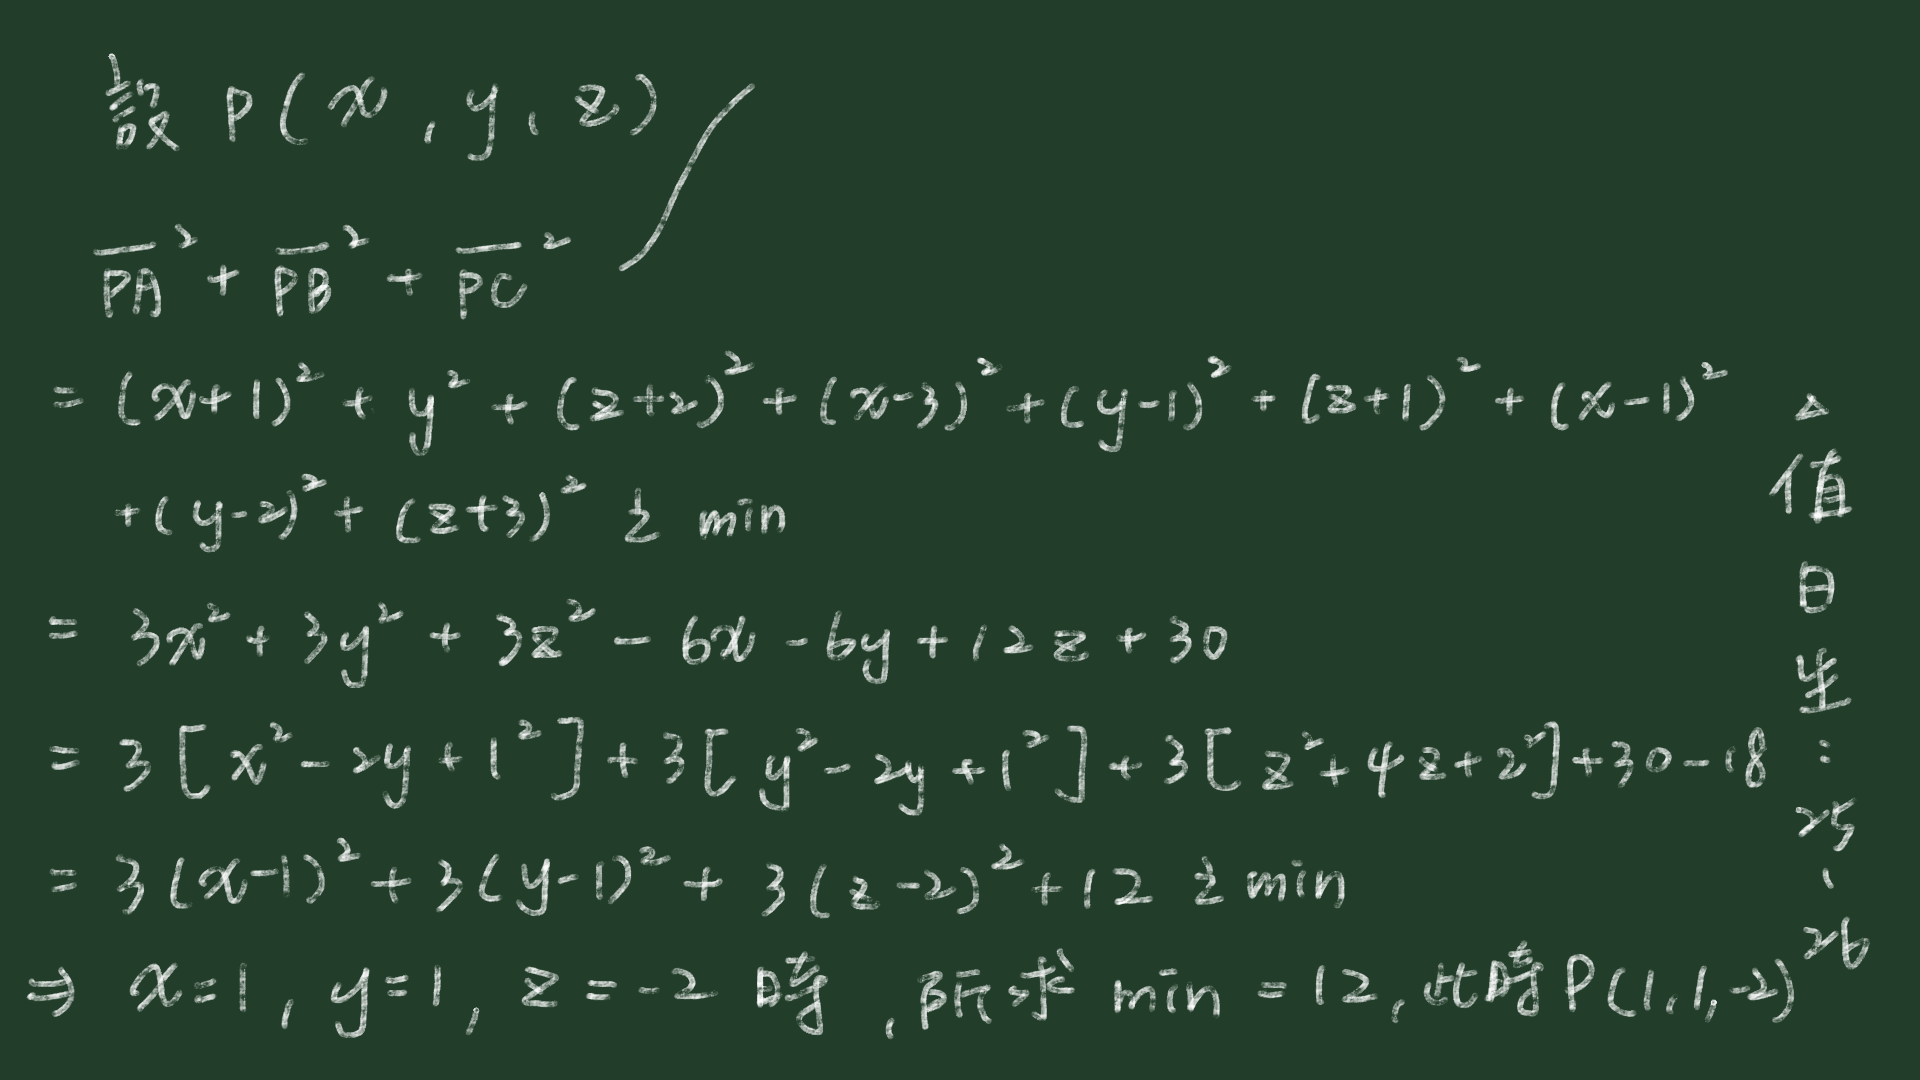 設 P(x,y,z)
PA² + PB² + PC²
= (x+1)² + y² + (z+2)² + (x-3)² + (y-1)² + (z+1)² + (x-1)²
+(y-2)² + (z+3)² 之 min
= 3x² + 3y² + 3z² - 6x - 6y + 12z + 30
= 3[x² - 2y + 1²] + 3[y² - 2y + 1²] + 3[z² + 4z + 2²] + 30 - 18
= 3(x-1)² + 3(y-1)² + 3(z-2)² + 12 之 min
⇒ x=1, y=1, z=-2 時, 所求 min = 12, 此時 P(1,1,-2)
△值日生:25、26